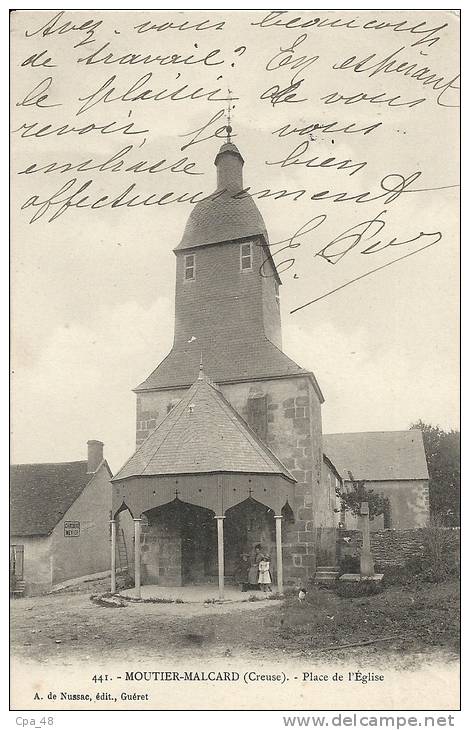 Avez-vous beaucoup
de travail? En espérant
le plaisir de vous
revoir je vous
embrasse bien
affectueusement
441. - MOUTIER-MALCARD (Creuse). - Place de l'Église
A. de Nussac, édit., Guéret
Cpa_48
www.delcampe.net